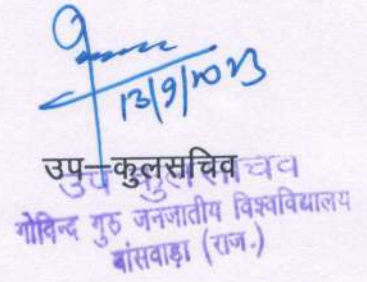 13/9/2023
उप–कुलसचिव
उप कुलसचिव
गोविन्द गुरु जनजातीय विश्वविद्यालय
बांसवाड़ा (राज.)